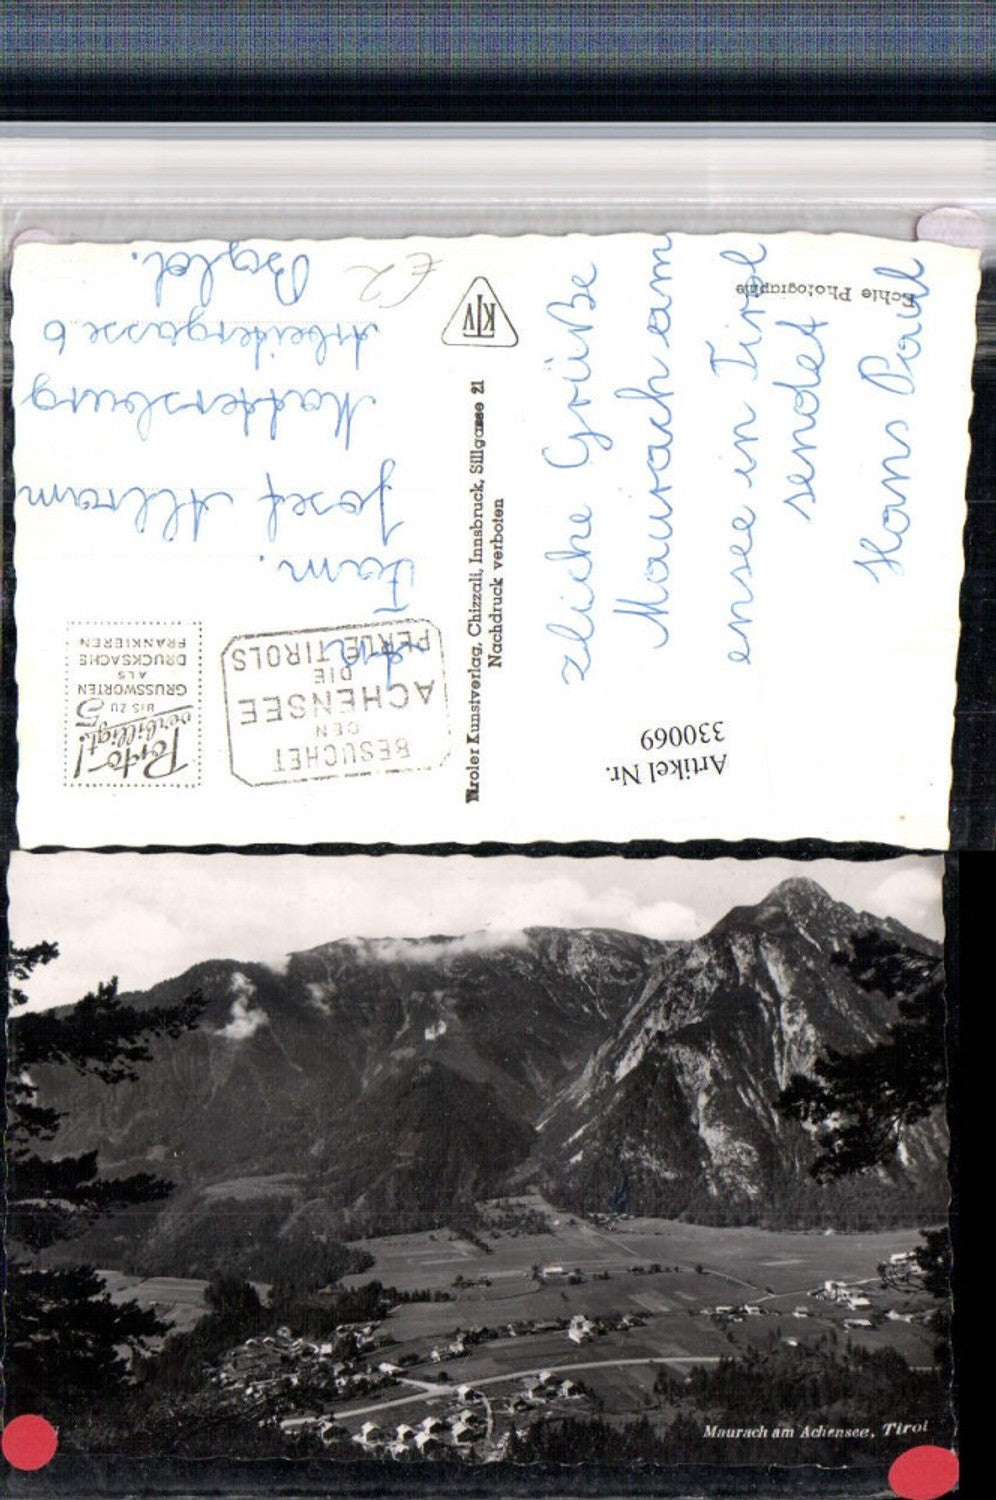 zliche Grüße
Maurach am
ensee in Tirol
sendet
Hans Paul
Echte Photographie
Artikel Nr.
330069
Tiroler Kunstverlag, Chizzali, Innsbruck, Sillgasse 21
Nachdruck verboten
KTV
BESUCHET
DEN
ACHENSEE
DIE
PERLE TIROLS
Porto-!
verbilligt!
BIS ZU 5
GRUSSWORTEN
ALS
DRUCKSACHE
FRANKIEREN
An
Fam.
Josef Allram
Mattersburg
Arbeitergasse 6
Bgld.
€2
Maurach am Achensee, Tirol